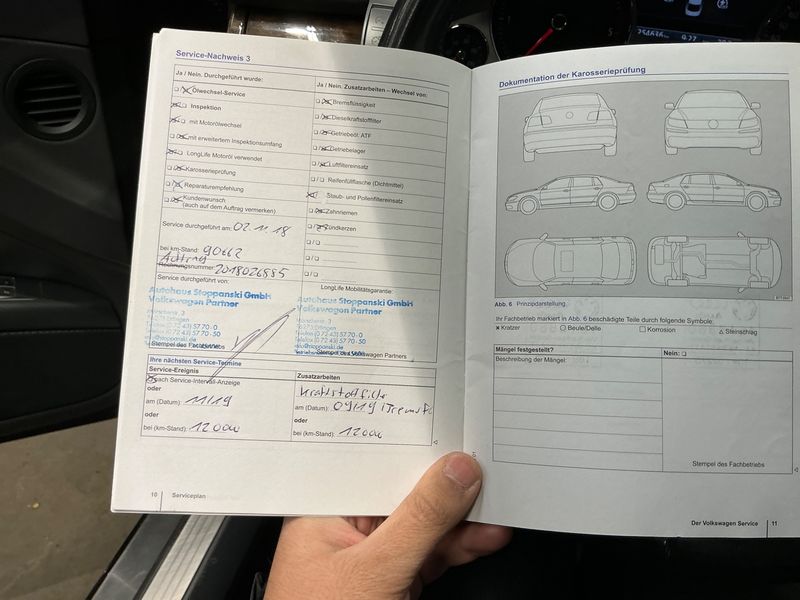 Service-Nachweis 3
Ja / Nein. Durchgeführt wurde:
Ölwechsel-Service
Inspektion
mit Motorölwechsel
mit erweitertem Inspektionsumfang
LongLife Motoröl verwendet
Karosserieprüfung
Reparaturempfehlung
Kundenwunsch
(auch auf dem Auftrag vermerken)
Service durchgeführt am: 02.11.18
bei km-Stand: 90662
Rechnungsnummer 2018026585
Service durchgeführt von:
Autohaus Stoppanski GmbH
Volkswagen Partner
Stempel des Fachbetriebs
Ja / Nein. Zusatzarbeiten – Wechsel von:
Bremsflüssigkeit
Dieselkraftstofffilter
Getriebeöl: ATF
Getriebelager
Luftfiltereinsatz
Reifenfüllflasche (Dichtmittel)
Staub- und Pollenfiltereinsatz
Zahnriemen
Zündkerzen
LongLife Mobilitätsgarantie:
Autohaus Stoppanski GmbH
Volkswagen Partner
Stempel des Volkswagen Partners
Ihre nächsten Service-Termine
Service-Ereignis
nach Service-Intervall-Anzeige
oder
am (Datum): 11/19
oder
bei (km-Stand): 12000
Zusatzarbeiten
am (Datum): 09/19
oder
bei (km-Stand): 12000
10 Serviceplan
Dokumentation der Karosserieprüfung
Abb. 6 Prinzipdarstellung
Ihr Fachbetrieb markiert in Abb. 6 beschädigte Teile durch folgende Symbole:
× Kratzer ○ Beule/Delle □ Korrosion △ Steinschlag
Mängel festgestellt?
Nein: ❑
Beschreibung der Mängel:
Stempel des Fachbetriebs
Der Volkswagen Service 11